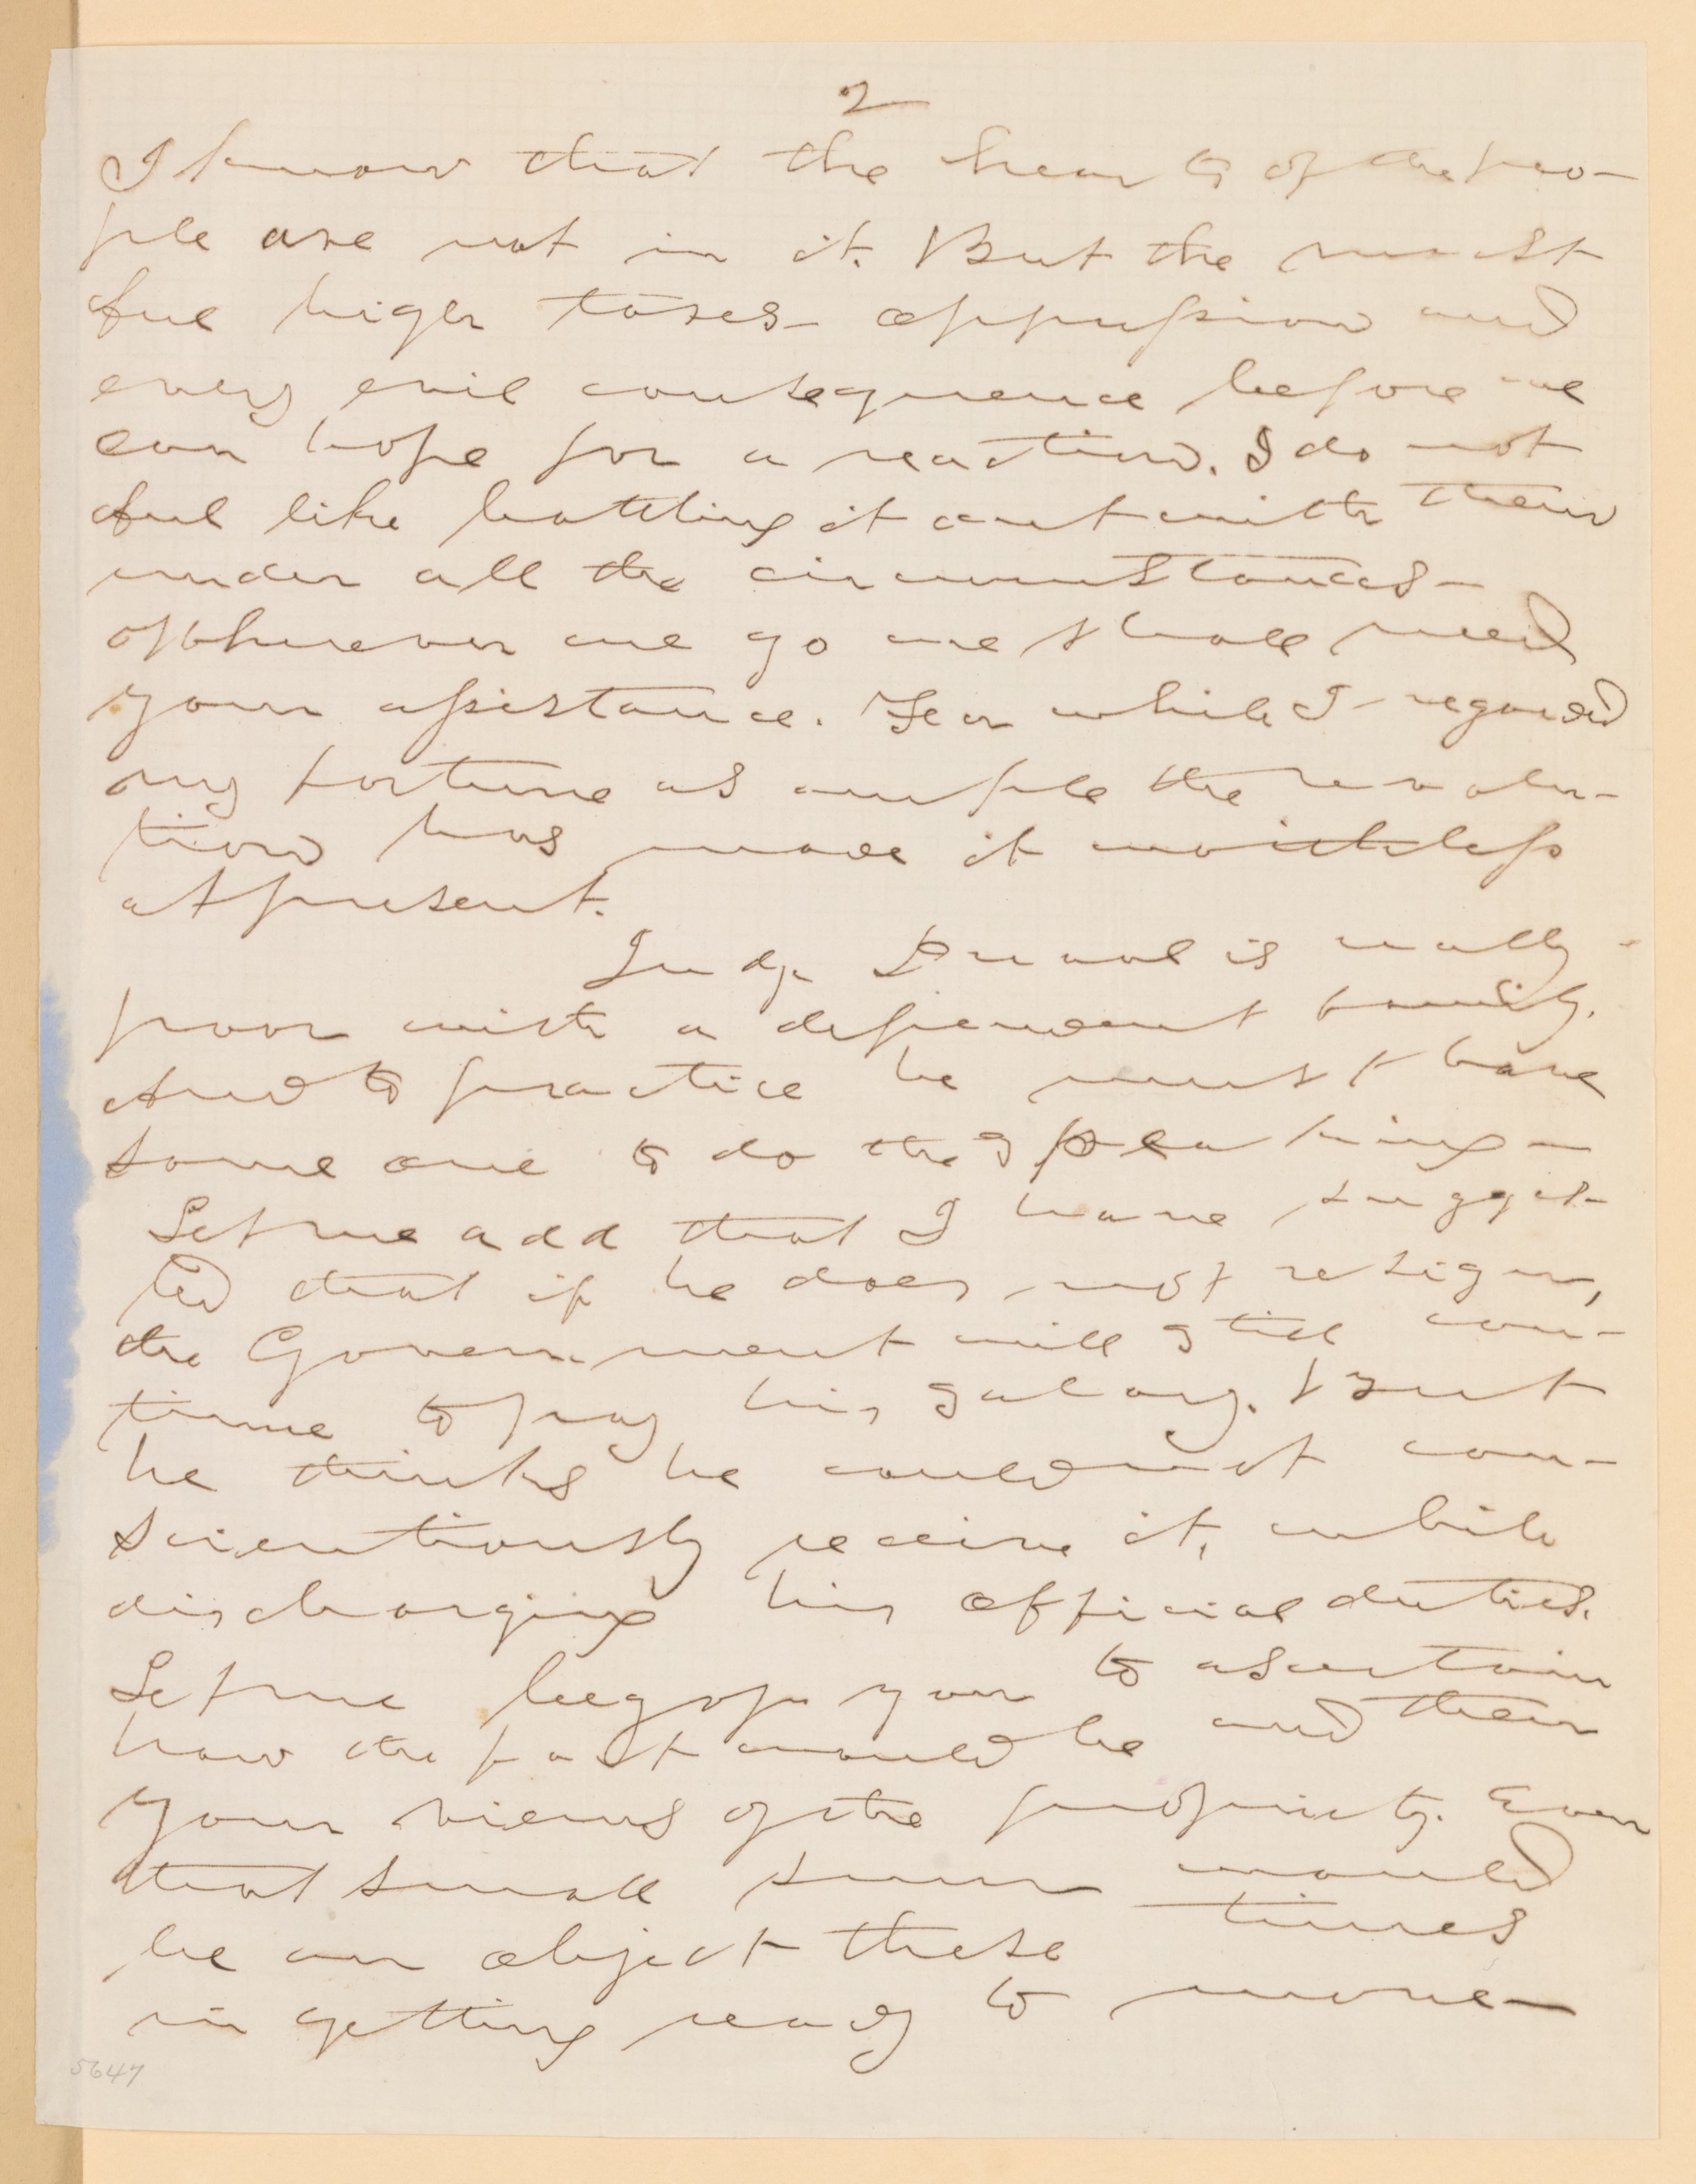 2
I know that the hearts of the peo-
ple are not in it. But the must
feel higer taxes - oppression and
every evil consequence before we
can hope for a reaction. I do not
feel like battling it out with them
under all the circumstances -
If wherever we go we shall need
your assistance. For while I regarded
my fortune as ample the revolu-
tion has made it worthless
at present.
Judge Duval is really
poor with a dependent family.
And to practice he must have
some one to do the speaking -
Let me add that I have sugges-
ted that if he does not resign,
the Government will still con-
tinue to pay his salary. But
he thinks he could not con-
scientiously receive it, while
discharging his official duties.
Let me beg of you to asertain
how the fact would be and then
your views of the propriety. Even
that small sum would
be an object these times
in getting ready to move -
5647